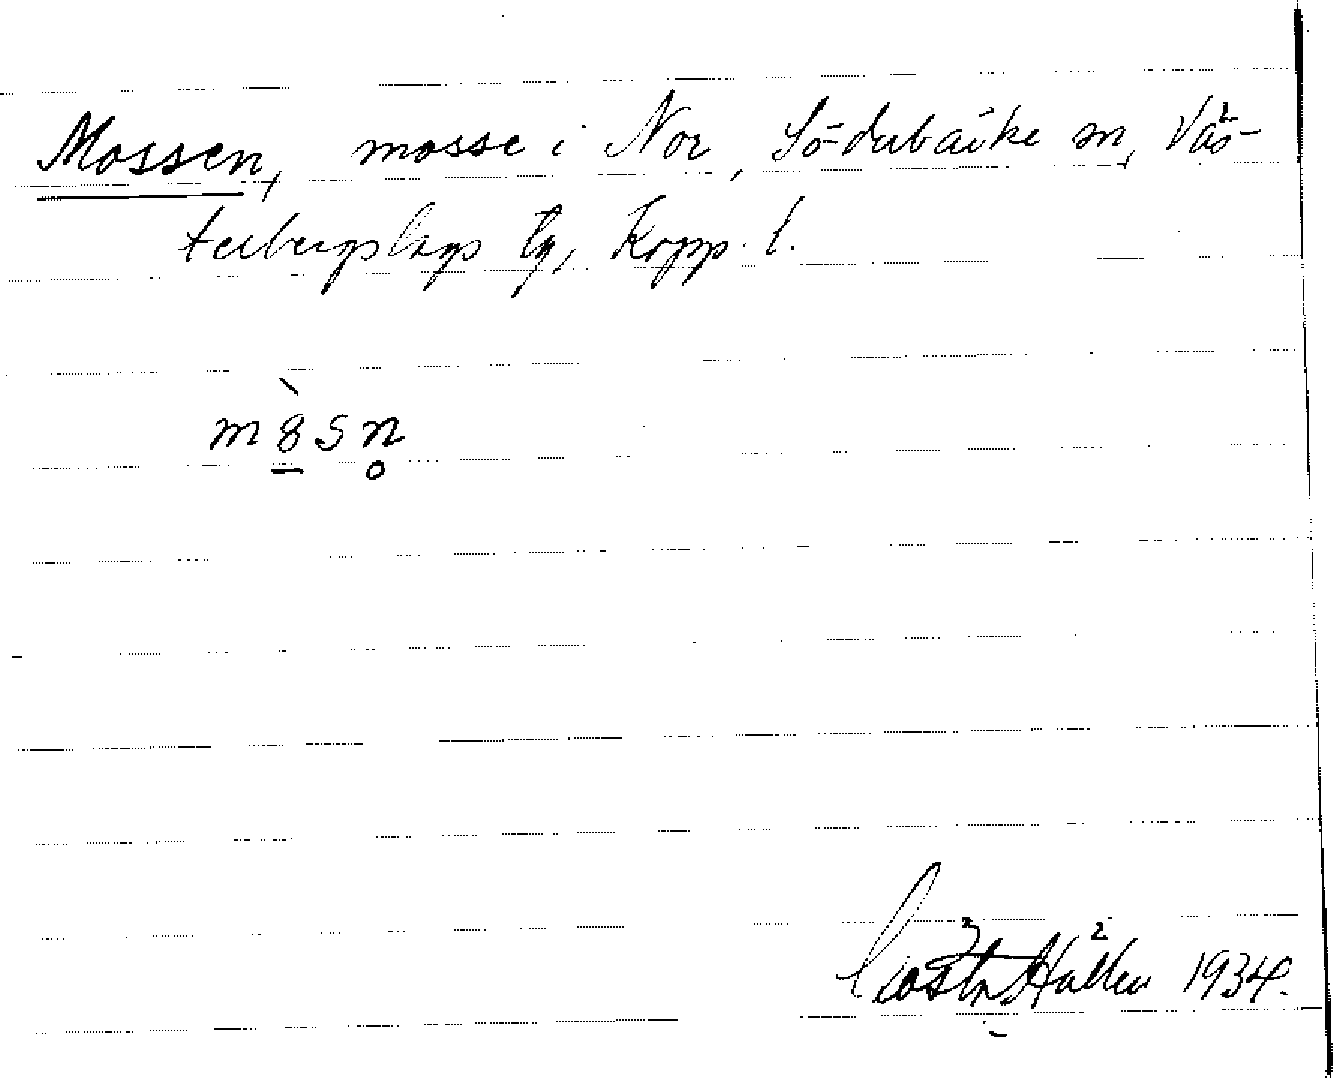 Mossen, mosse i Nor, Söderbärke sn, Väs-
terbergslags tg, Kopp. l.
m8̲̀sn̥
Gösta Hallén 1934.